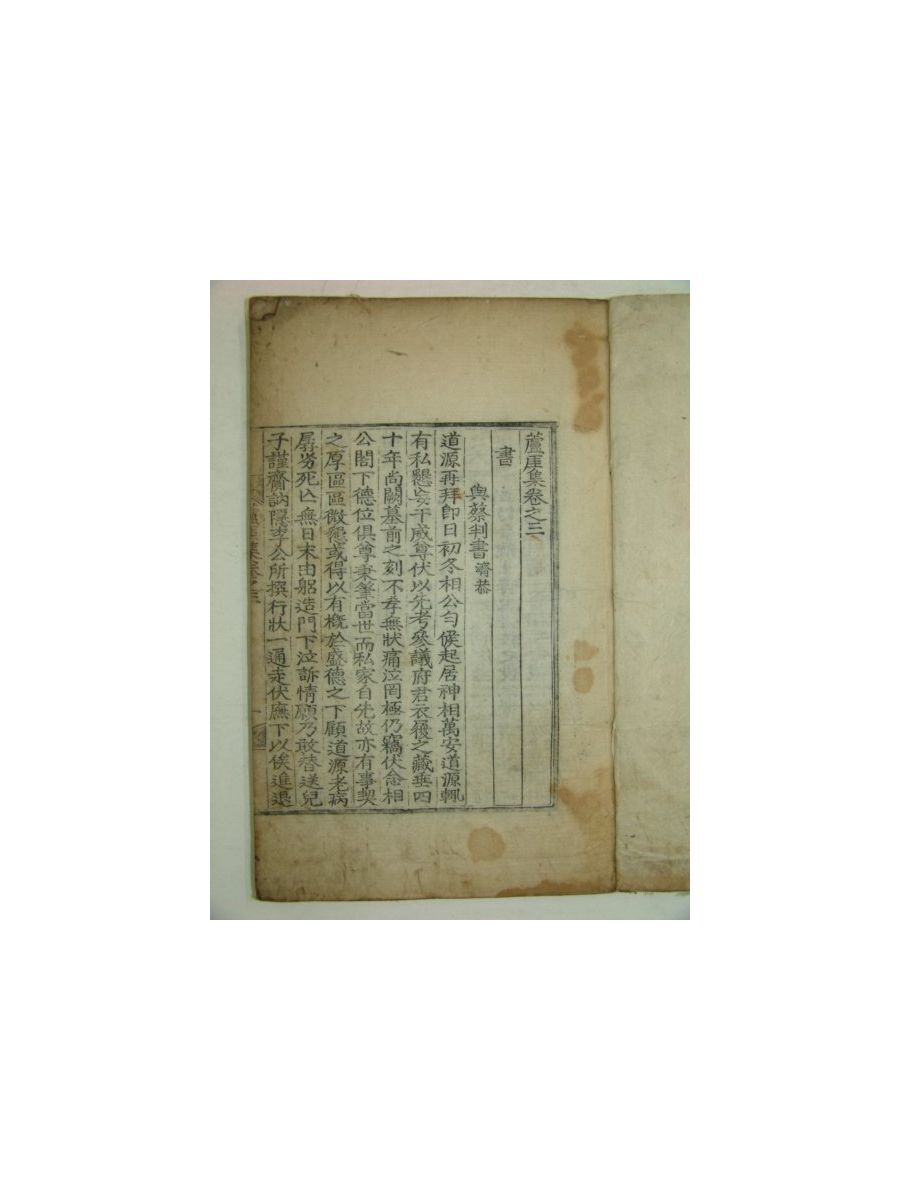 蘆厓集卷之三
書
與蔡判書 濟恭
道源再拜卽日初冬相公匀候起居神相萬安道源輒
有私懇妄干威尊伏以先考參議府君衣履之藏垂四
十年尚闕墓前之刻不孝無狀痛泣罔極仍竊伏念相
公閤下德位俱尊秉筆當世而私家自先故亦有事契
之厚區區微懇或得以有槪於盛德之下顧道源老病
孱劣死亡無日末由躬造門下泣訴情願乃敢替送兒
子謹齎訥隱李公所撰行狀一通走伏廡下以俟進退